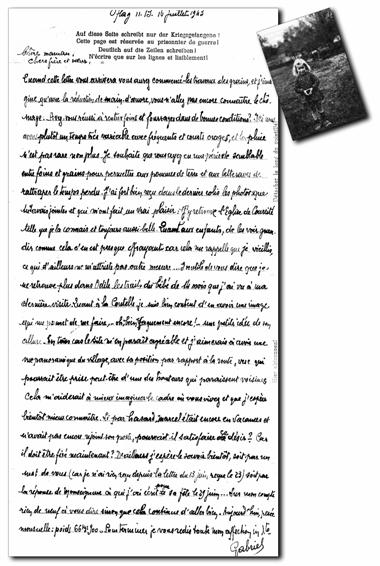 Oflag II.B. 16 juillet 1942
Auf diese Seite schreibt nur der Kriegsgefangene!
Cette page est réservée au prisonnier de guerre!
Deutlich auf die Zeilen schreiben!
N'écrire que sur les lignes et lisiblement!
maman,
cher père et vous,
Quand cette lettre vous arrivera vous aurez commencé les travaux des grains, et j'
gine qu'avec la réduction de main-d'œuvre, vous n'allez pas encore connaître le chô-
mage. Avez-vous réussi à rentrer foins et fourrages dans de bonnes conditions? Ici nous
avons plutôt un temps très variable avec fréquents et courts orages, et la pluie
n'est pas rare non plus. Je souhaite que vous ayez eu une période de semblable
entre foins et grains pour permettre aux pommes de terre et aux betteraves de
rattraper le temps perdu. J'ai fort bien reçu dans le dernier colis les photos que
jointes et qui m'ont fait un vrai plaisir: j'y retrouve l'Eglise de
telle que je la connais et toujours aussi belle. Quant aux enfants, de les voir gran-
dir comme cela c'en est presque effrayant car cela me rappelle que je vieillis
ce qui d'ailleurs ne m'attriste pas outre mesure... Inutile de vous dire que je
ne retrouve plus dans les traits du bébé de 18 mois que j'ai vu à ma
dernière visite. Quant à la je suis bien content d'en avoir une image
qui me permet de me faire, - oh, bien vaguement encore! - une petite idée de son
allure. En tous cas le site m'en paraît agréable et j'aimerais à avoir une
vue panoramique du village, avec sa position par rapport à la route, vue qui
pourrait être prise peut-être d'une des hauteurs qui paraissent voisines
Cela m'aiderait à mieux imaginer le cadre où vous vivez et que j'espère
bientôt mieux connaître. Si par hasard Marcel était encore en vacances et
n'avait pas encore rejoint son poste, pourrait-il satisfaire ce désir? Car
il doit être fixé maintenant? D'ailleurs j'espère le savoir bientôt, soit par un
mot de vous (car je n'ai rien reçu depuis la lettre du 13 juin, reçue le 23) soit par
la réponse de Monseigneur à qui j'ai écrit pour sa fête le 29 juin... Sur mon compte
rien de neuf à vous dire sinon que cela continue d'aller bien. Aujourd'hui, pesée
mensuelle: poids. Pour terminer je vous redis toute mon affection in Xto
Gabriel